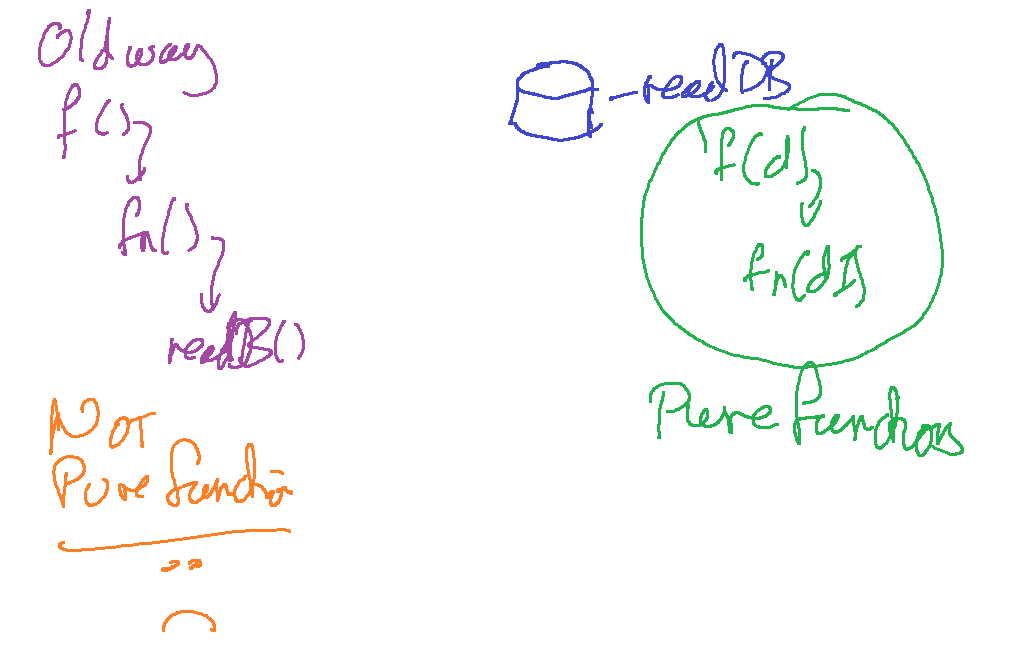 Old way
f()
fn()
readDB()
NOT
Pure function
readDB
f(d)
fn(dI)
Pure functions